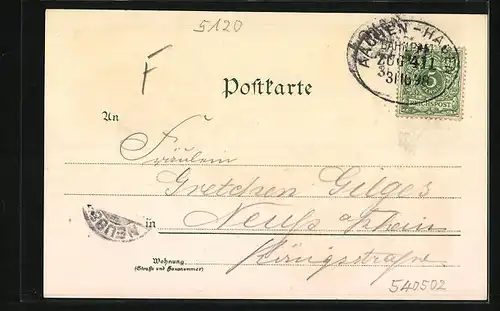 5120
F
AACHEN-HAG
BAHNPOST
ZUG 411
31 10 98
5
REICHSPOST
Postkarte
An
Fräulein
Gretchen Gilges
in Neuß a/Rhein
Königstraße.
NEUSS
Wohnung
(Straße und Hausnummer)
540502